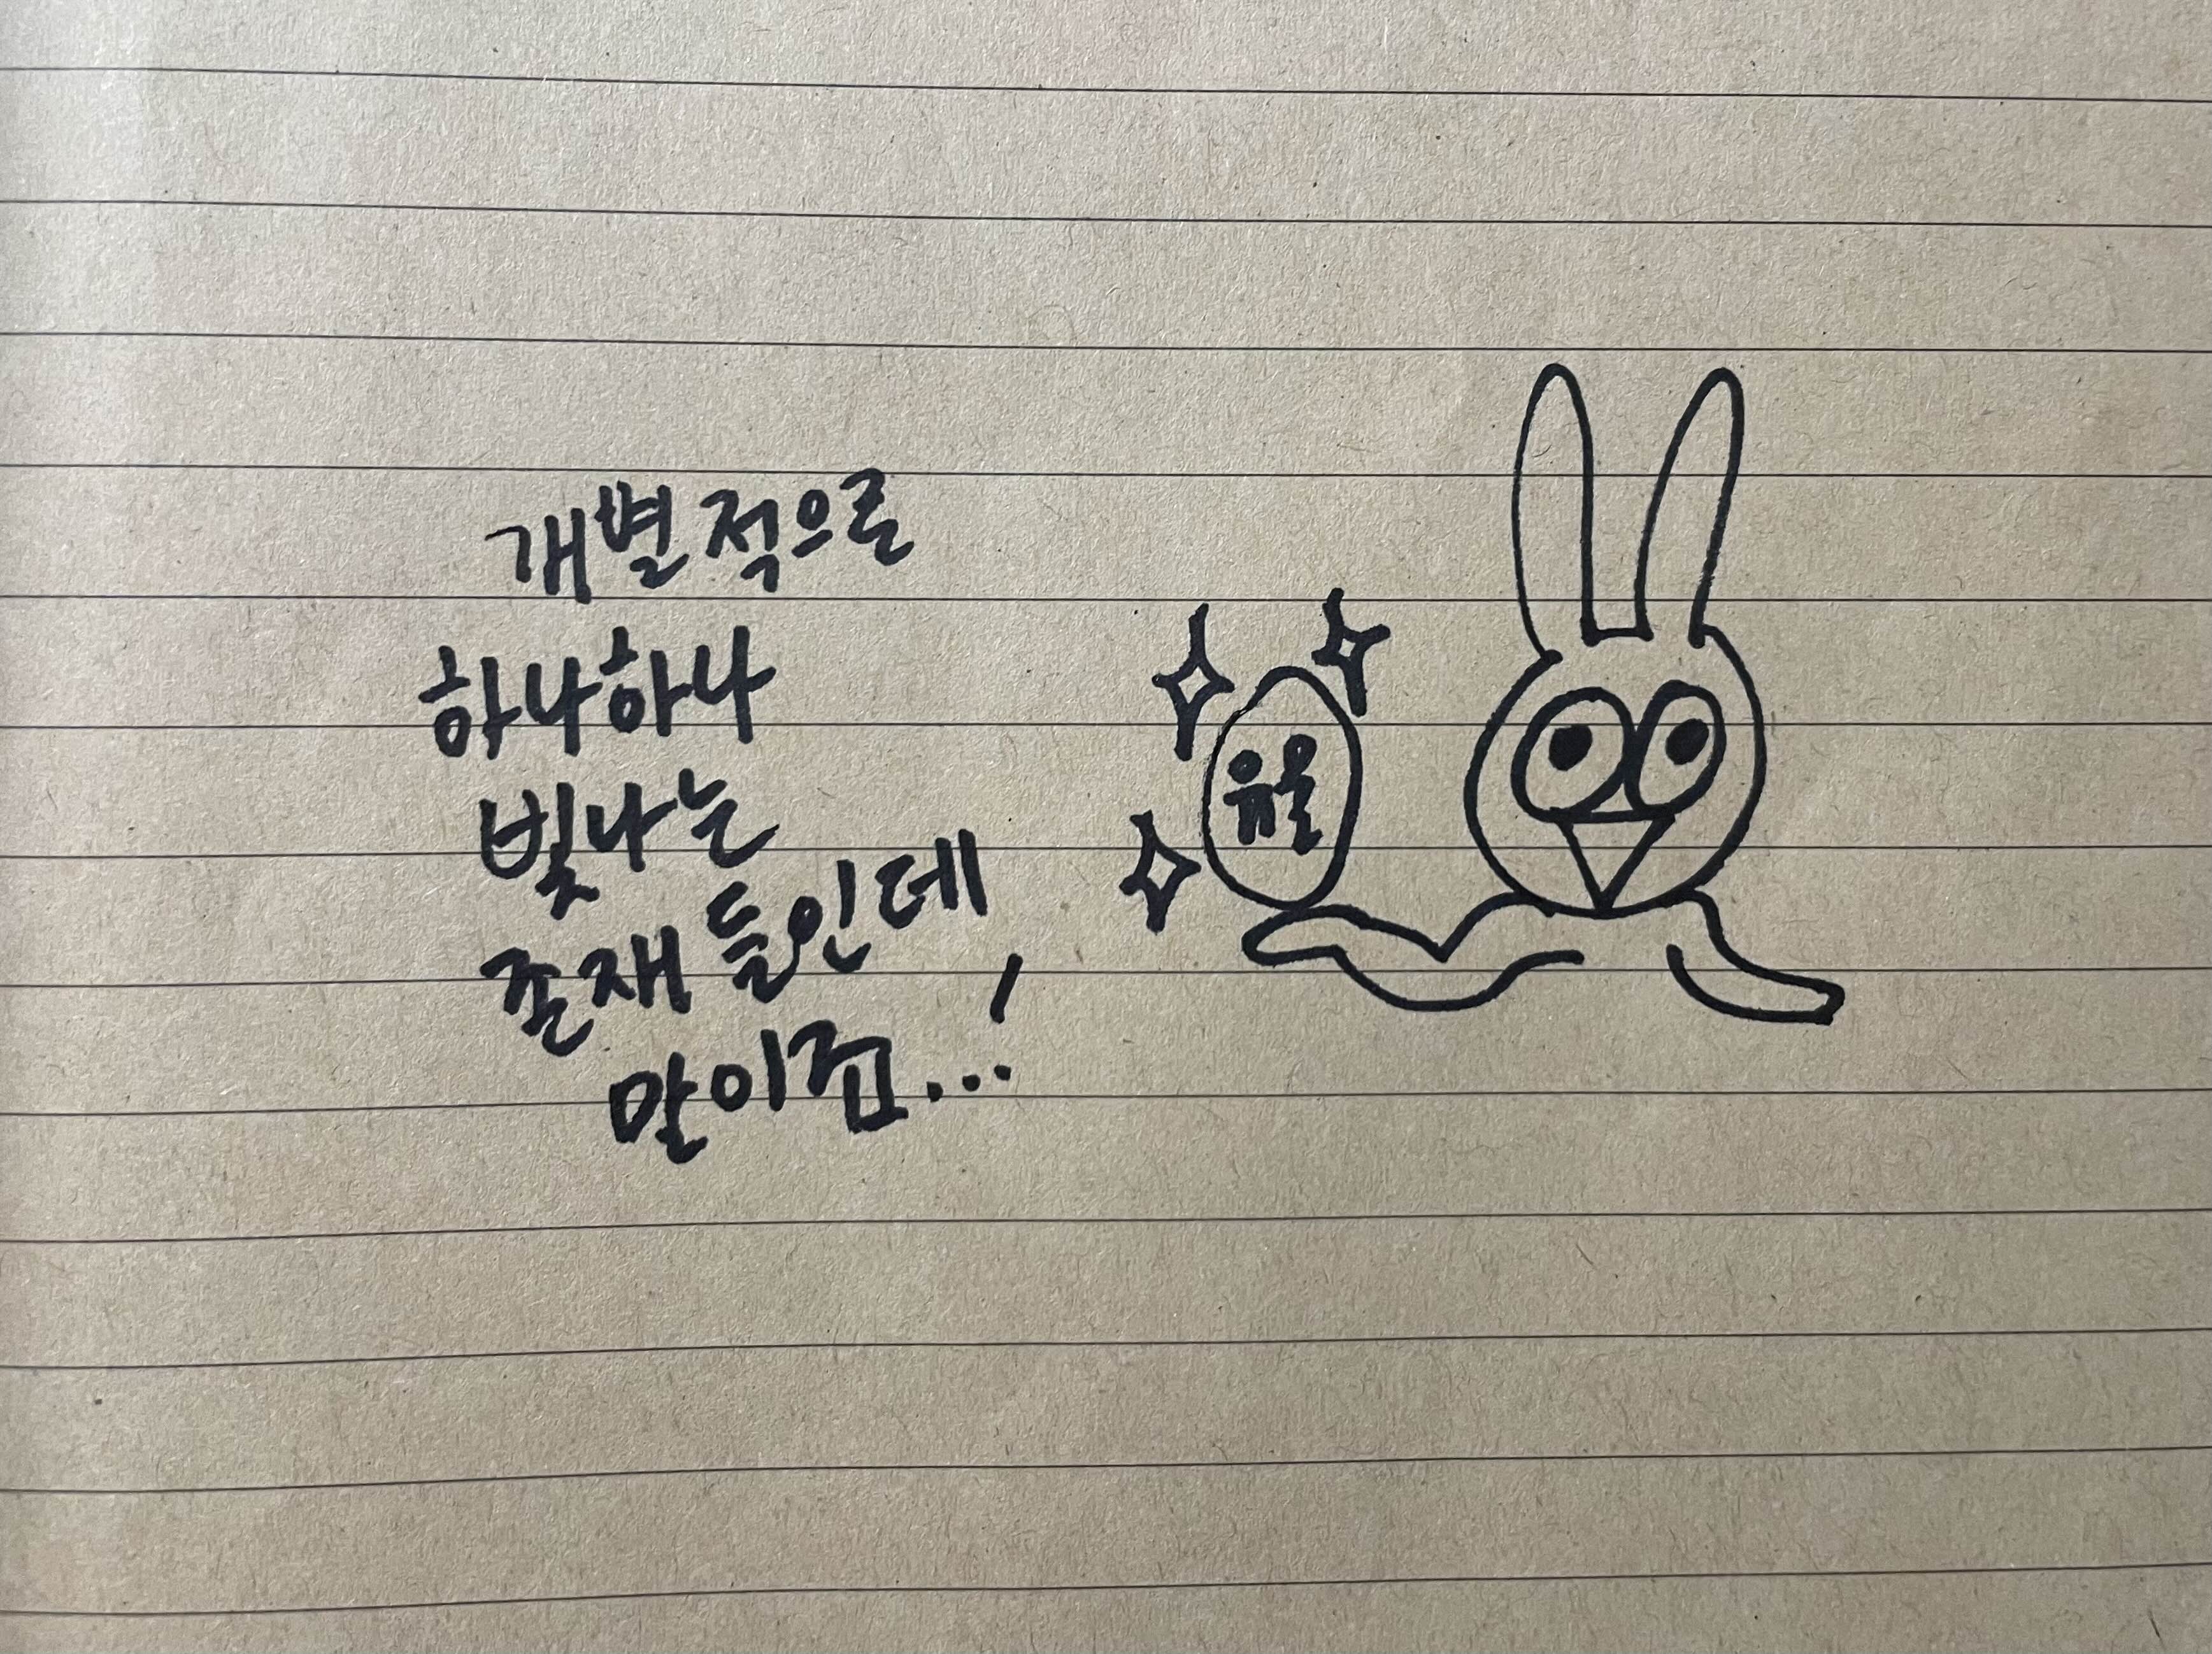 개별적으로
하나하나
빛나는
존재들인데
말이죠...!
유울